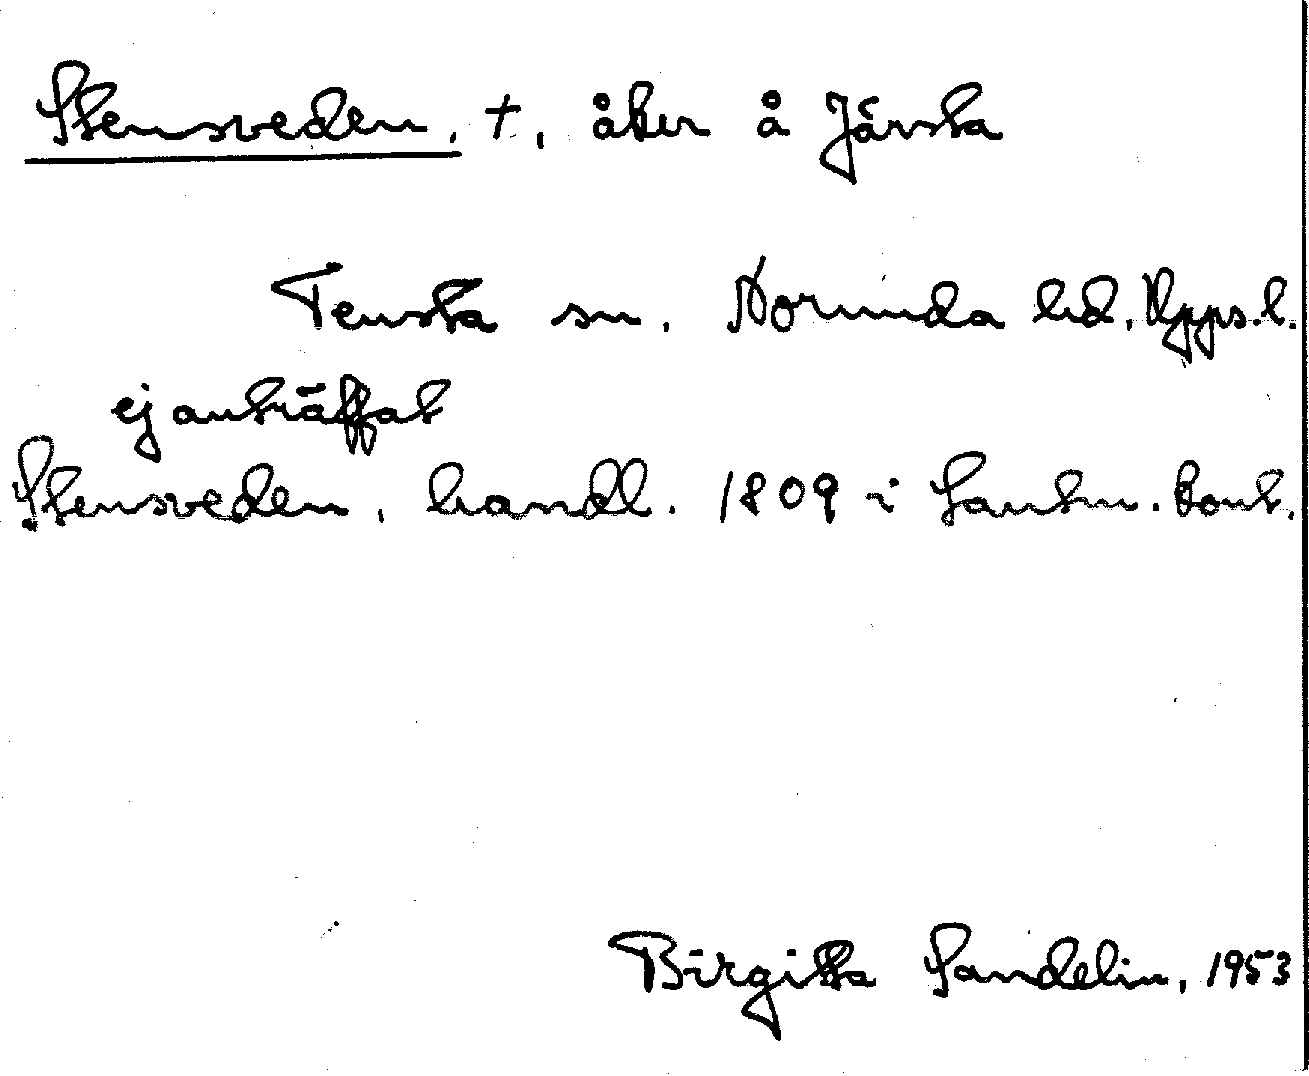 Stensveden, †, åker å Järsta
Tensta sn, Norunda hd, Upps.l.
ej anträffat
Stensveden, handl. 1809 i Lantm. kont.
Birgitta Sandelin, 1953